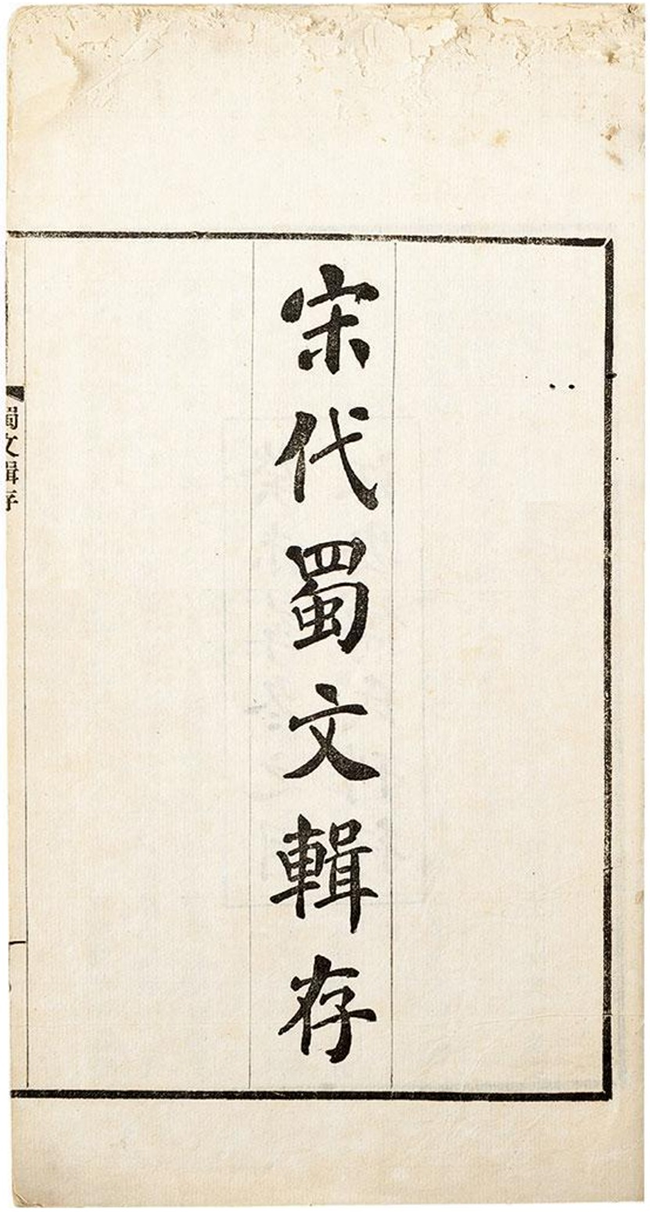 宋代蜀文輯存
蜀文輯存